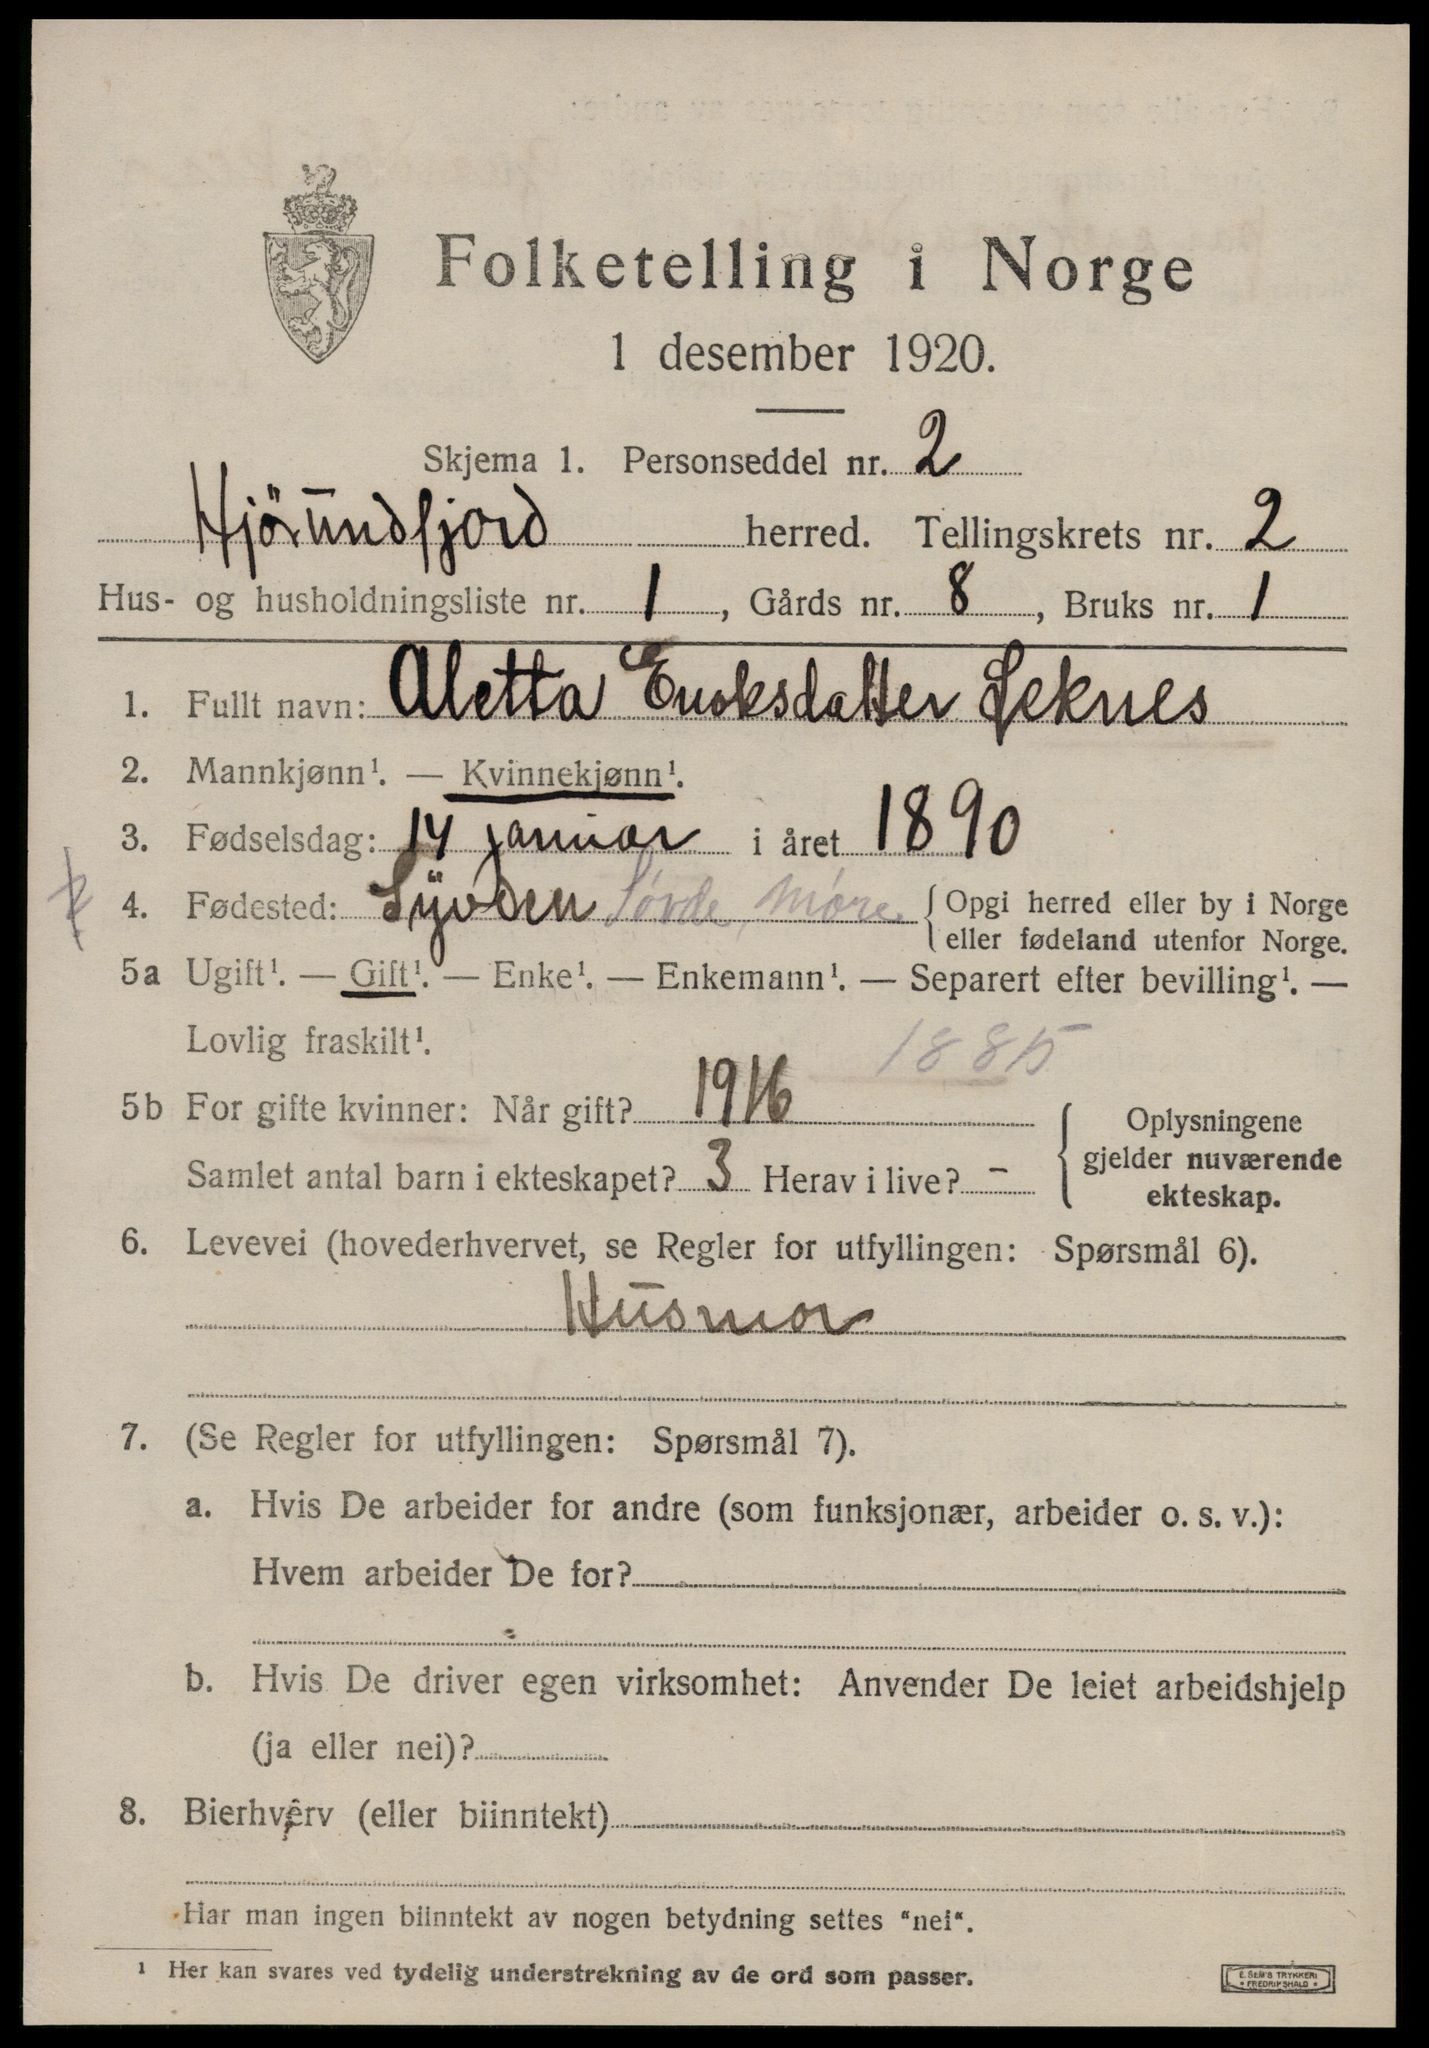 Folketelling i Norge
1 desember 1920.
Skjema 1. Personseddel nr. 2
Hjörundfjord herred. Tellingskrets nr. 2
Hus- og husholdningsliste nr. 1, Gårds nr. 8, Bruks nr. 1
1. Fullt navn: Aletta Enoksdatter Leknes
2. Mannkjønn¹. — Kvinnekjønn¹.
3. Fødselsdag: 14 januar i året 1890
4. Fødested: Syvden Sövde, Møre. {Opgi herred eller by i Norge
eller fødeland utenfor Norge.
5a Ugift¹. — Gift¹. — Enke¹. — Enkemann¹. — Separert efter bevilling¹. —
Lovlig fraskilt¹.
1885
5b For gifte kvinner: Når gift? 1916
Samlet antal barn i ekteskapet? 3 Herav i live? -
{ Oplysningene
gjelder nuværende
ekteskap.
6. Levevei (hovederhvervet, se Regler for utfyllingen: Spørsmål 6).
Husmor
7. (Se Regler for utfyllingen: Spørsmål 7).
a. Hvis De arbeider for andre (som funksjonær, arbeider o. s. v.):
Hvem arbeider De for?
b. Hvis De driver egen virksomhet: Anvender De leiet arbeidshjelp
(ja eller nei)?
8. Bierhverv (eller biinntekt)
Har man ingen biinntekt av nogen betydning settes "nei".
¹ Her kan svares ved tydelig understrekning av de ord som passer.
E. SEM'S TRYKKERI
• FREDRIKSHALD •